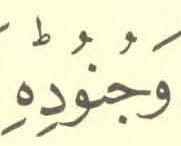 وَجُنُودِهِؕ